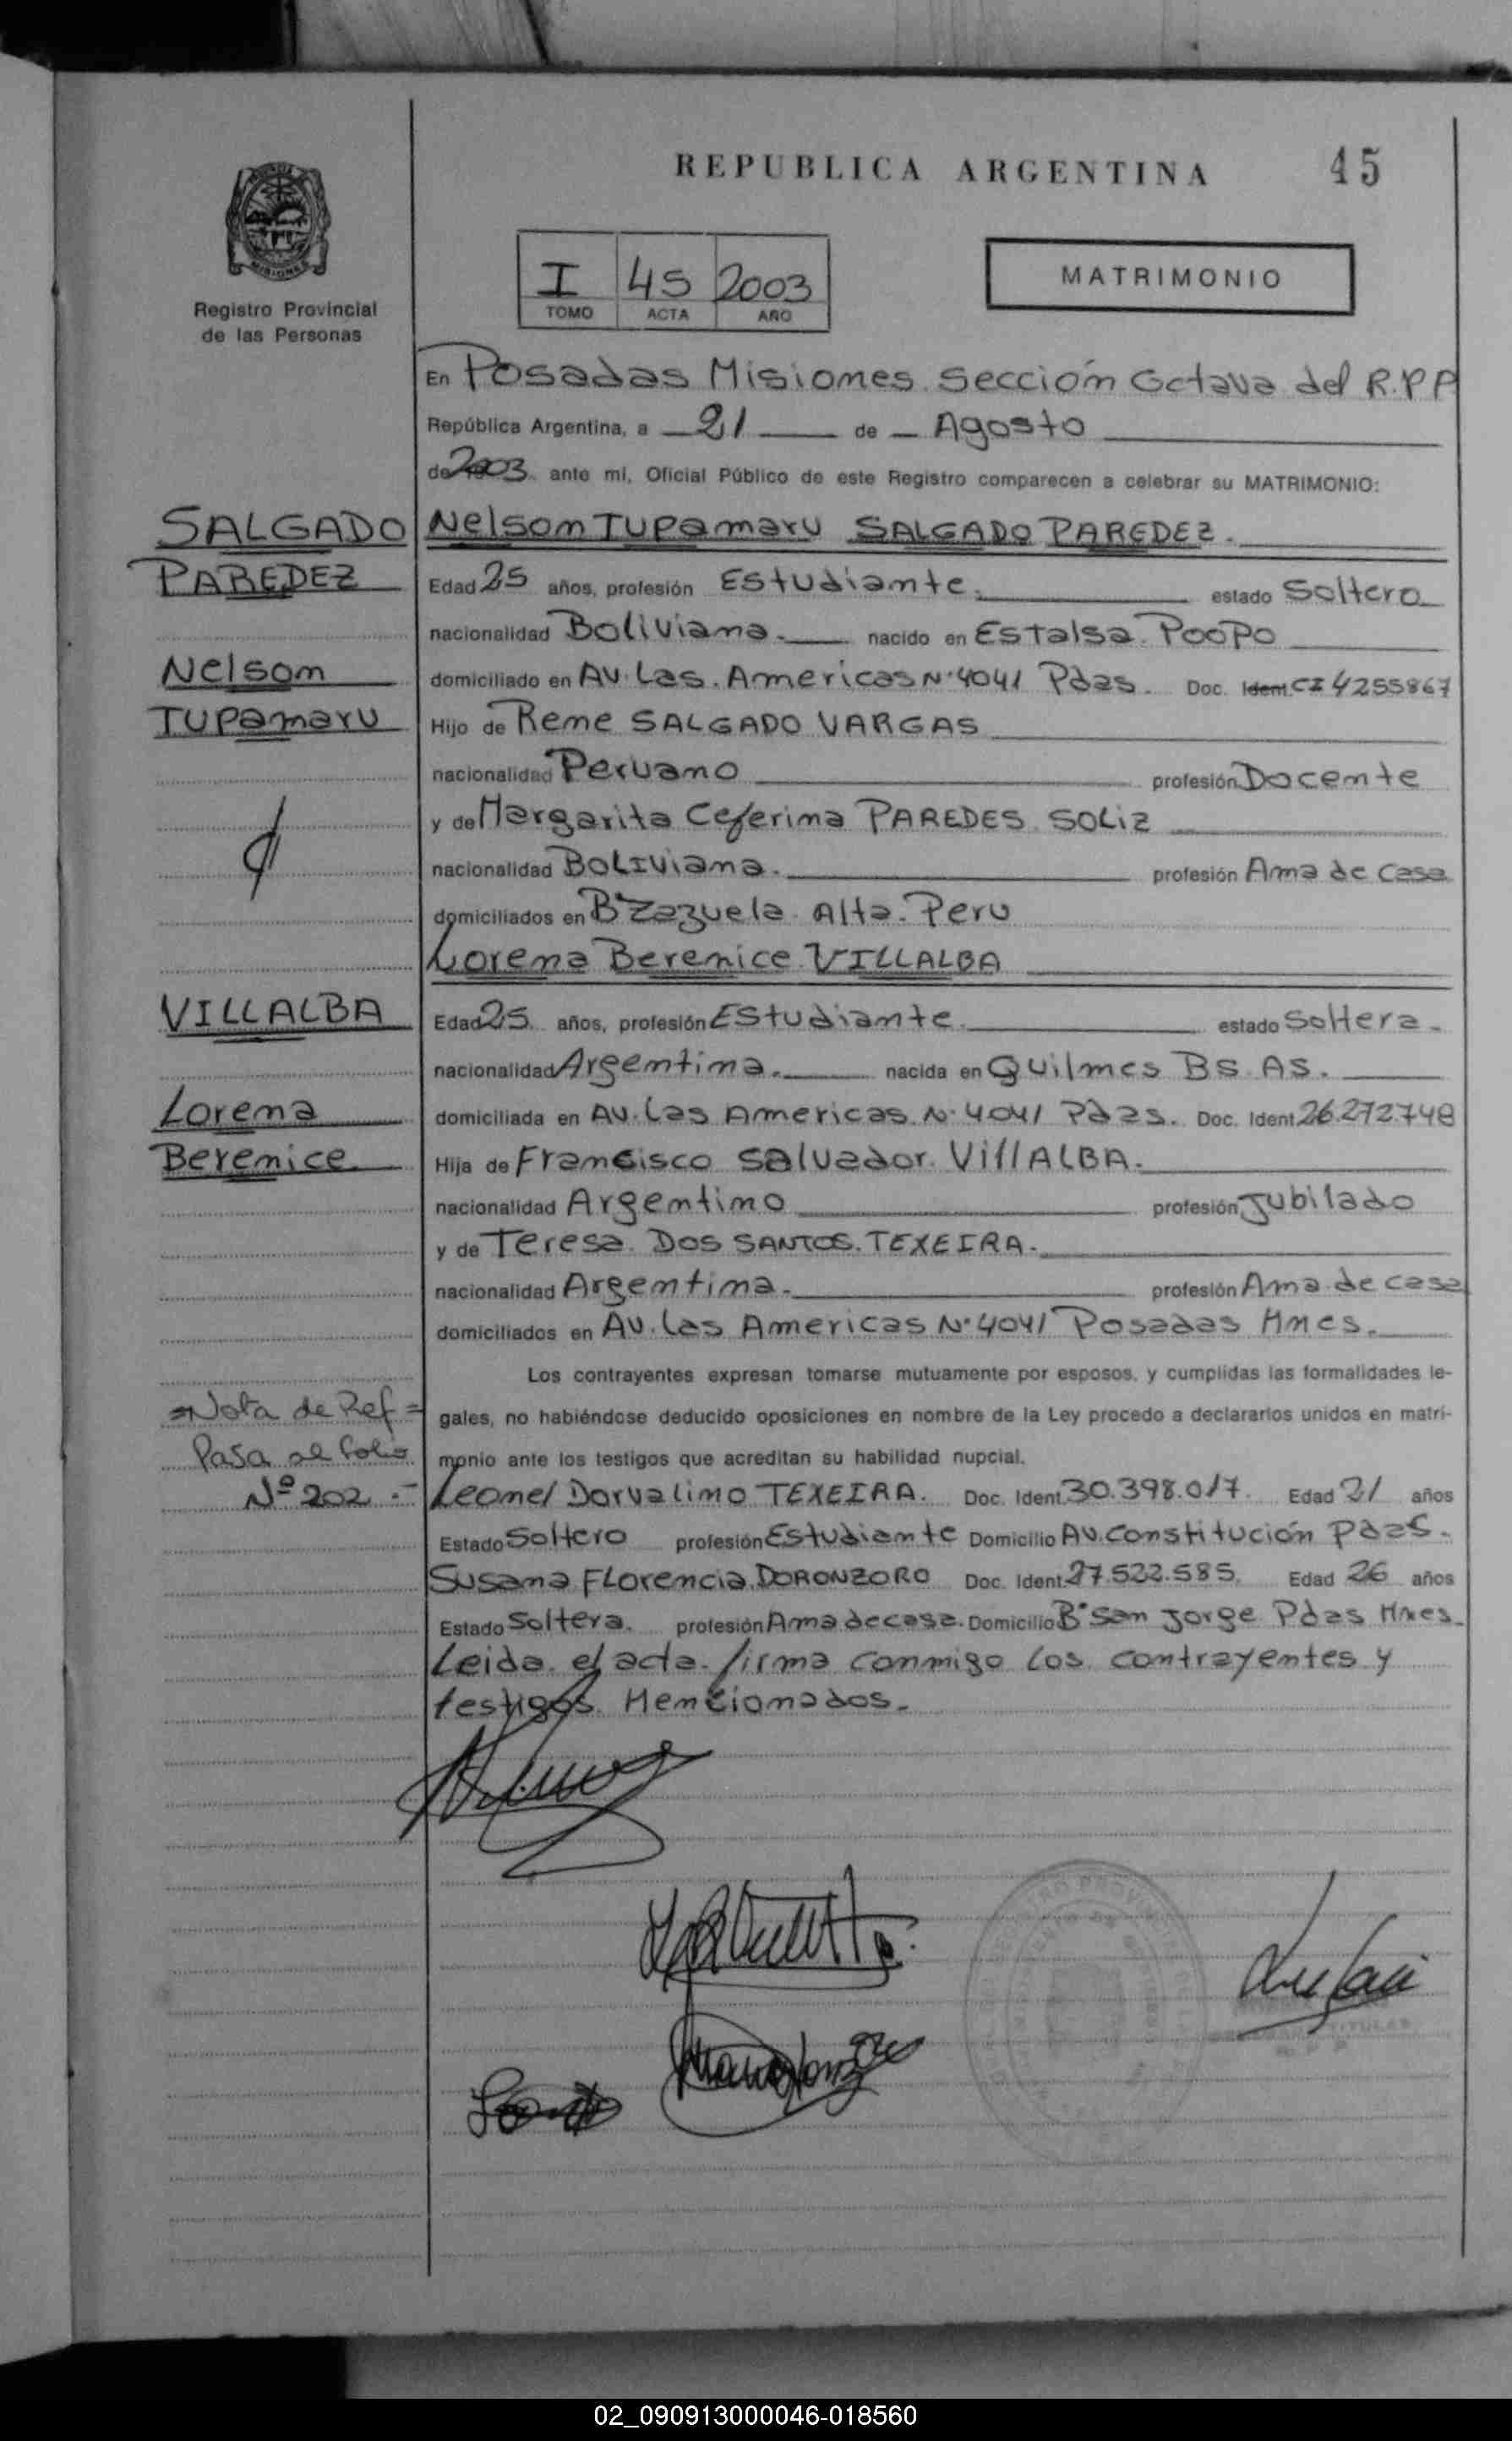 REPUBLICA ARGENTINA
45
MISIONES
Registro Provincial
de las Personas
I 45 2003
TOMO ACTA AÑO
MATRIMONIO
En Posadas Misiones Sección Octava del R.P.P
República Argentina, a 21 de Agosto
de 2003 ante mi, Oficial Público de este Registro comparecen a celebrar su MATRIMONIO:
SALGADO
PAREDEZ
Nelson
Tupamaru
Nelson Tupamaru SALGADO PAREDEZ.
Edad 25 años, profesión Estudiante. estado Soltero
nacionalidad Boliviana. nacido en Estalsa. Poopo
domiciliado en Av. Las. Americas N° 4041 Pdas. Doc. Ident. CI 4255867
Hijo de Rene SALGADO VARGAS
nacionalidad Peruano profesión Docente
y de Margarita Ceferina PAREDES. SOLIZ
nacionalidad Boliviana. profesión Ama de casa
domiciliados en B° Zazuela Alta. Peru
VILLALBA
Lorena
Berenice
Lorena Berenice VILLALBA
Edad 25 años, profesión Estudiante. estado Soltera.
nacionalidad Argentina. nacida en Quilmes BS AS.
domiciliada en Av. Las Americas N° 4041 Pdas. Doc. Ident. 26.272.748
Hija de Francisco Salvador VillALBA.
nacionalidad Argentino profesión Jubilado
y de Teresa. DOS SANTOS. TEXEIRA.
nacionalidad Argentina. profesión Ama de casa
domiciliados en Av. Las Americas N° 4041 Posadas Mnes.
Los contrayentes expresan tomarse mutuamente por esposos, y cumplidas las formalidades le-
gales, no habiéndose deducido oposiciones en nombre de la Ley procedo a declararlos unidos en matri-
monio ante los testigos que acreditan su habilidad nupcial.
=Nota de Ref=
Pasa al folio
Nº 202.-
Leonel Dorvalino TEXEIRA. Doc. Ident. 30.398.017. Edad 21 años
Estado Soltero profesión Estudiante Domicilio Av. Constitución Pdas.
Susana Florencia DORONZORO Doc. Ident. 27.522.585. Edad 26 años
Estado Soltera. profesión Ama de casa. Domicilio B° San Jorge Pdas Mnes.
Leida el acta. firma conmigo los contrayentes y
testigos Mencionados.
02_090913000046-018560